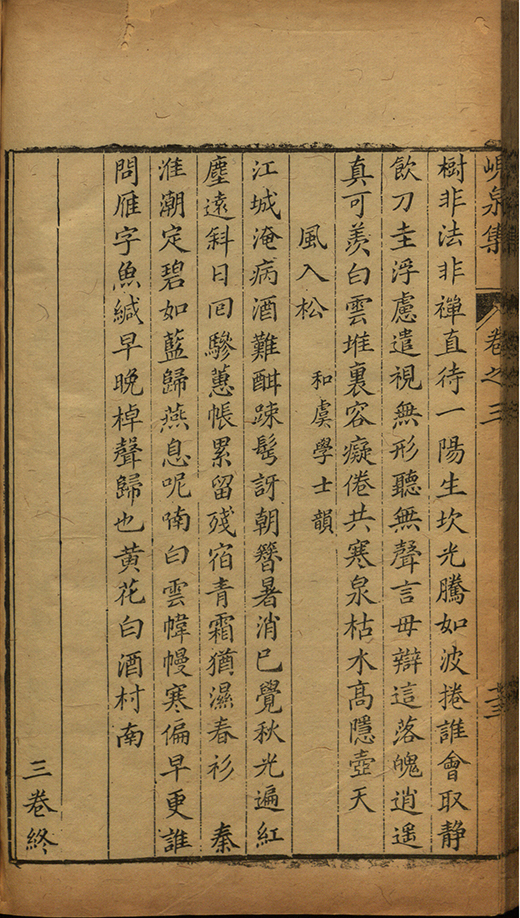 峴泉集 卷之三 十三
樹非法非禪直待一陽生坎光騰如波捲誰會取静
飲刀圭浮慮遣視無形聽無聲言毋辯這落魄逍遥
真可羨白雲堆裏容癡倦共寒泉枯木高隱壺天
風入松 和虞學士韻
江城淹病酒難酣踈髩訝朝簪暑消已覺秋光遍紅
塵遠斜日回驂蕙帳累留殘宿青霜猶濕春衫 秦
淮潮定碧如藍歸燕息呢喃白雲幃幔寒偏早更誰
問雁字魚緘早晚棹聲歸也黄花白酒村南
三卷終